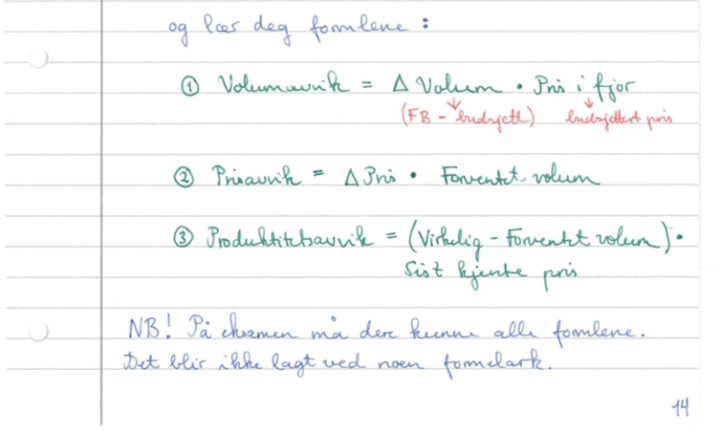 og lær deg formlene :
① Volumavvik = Δ Volum • Pris i fjor
(FB - budsjett) budsjettert pris
② Prisavvik = Δ Pris • Forventet volum
③ Produktitetsavvik = (Virkelig - Forventet volum) •
Sist kjente pris
NB! På eksamen må dere kunne alle formlene.
Det blir ikke lagt ved noen formelark.
14